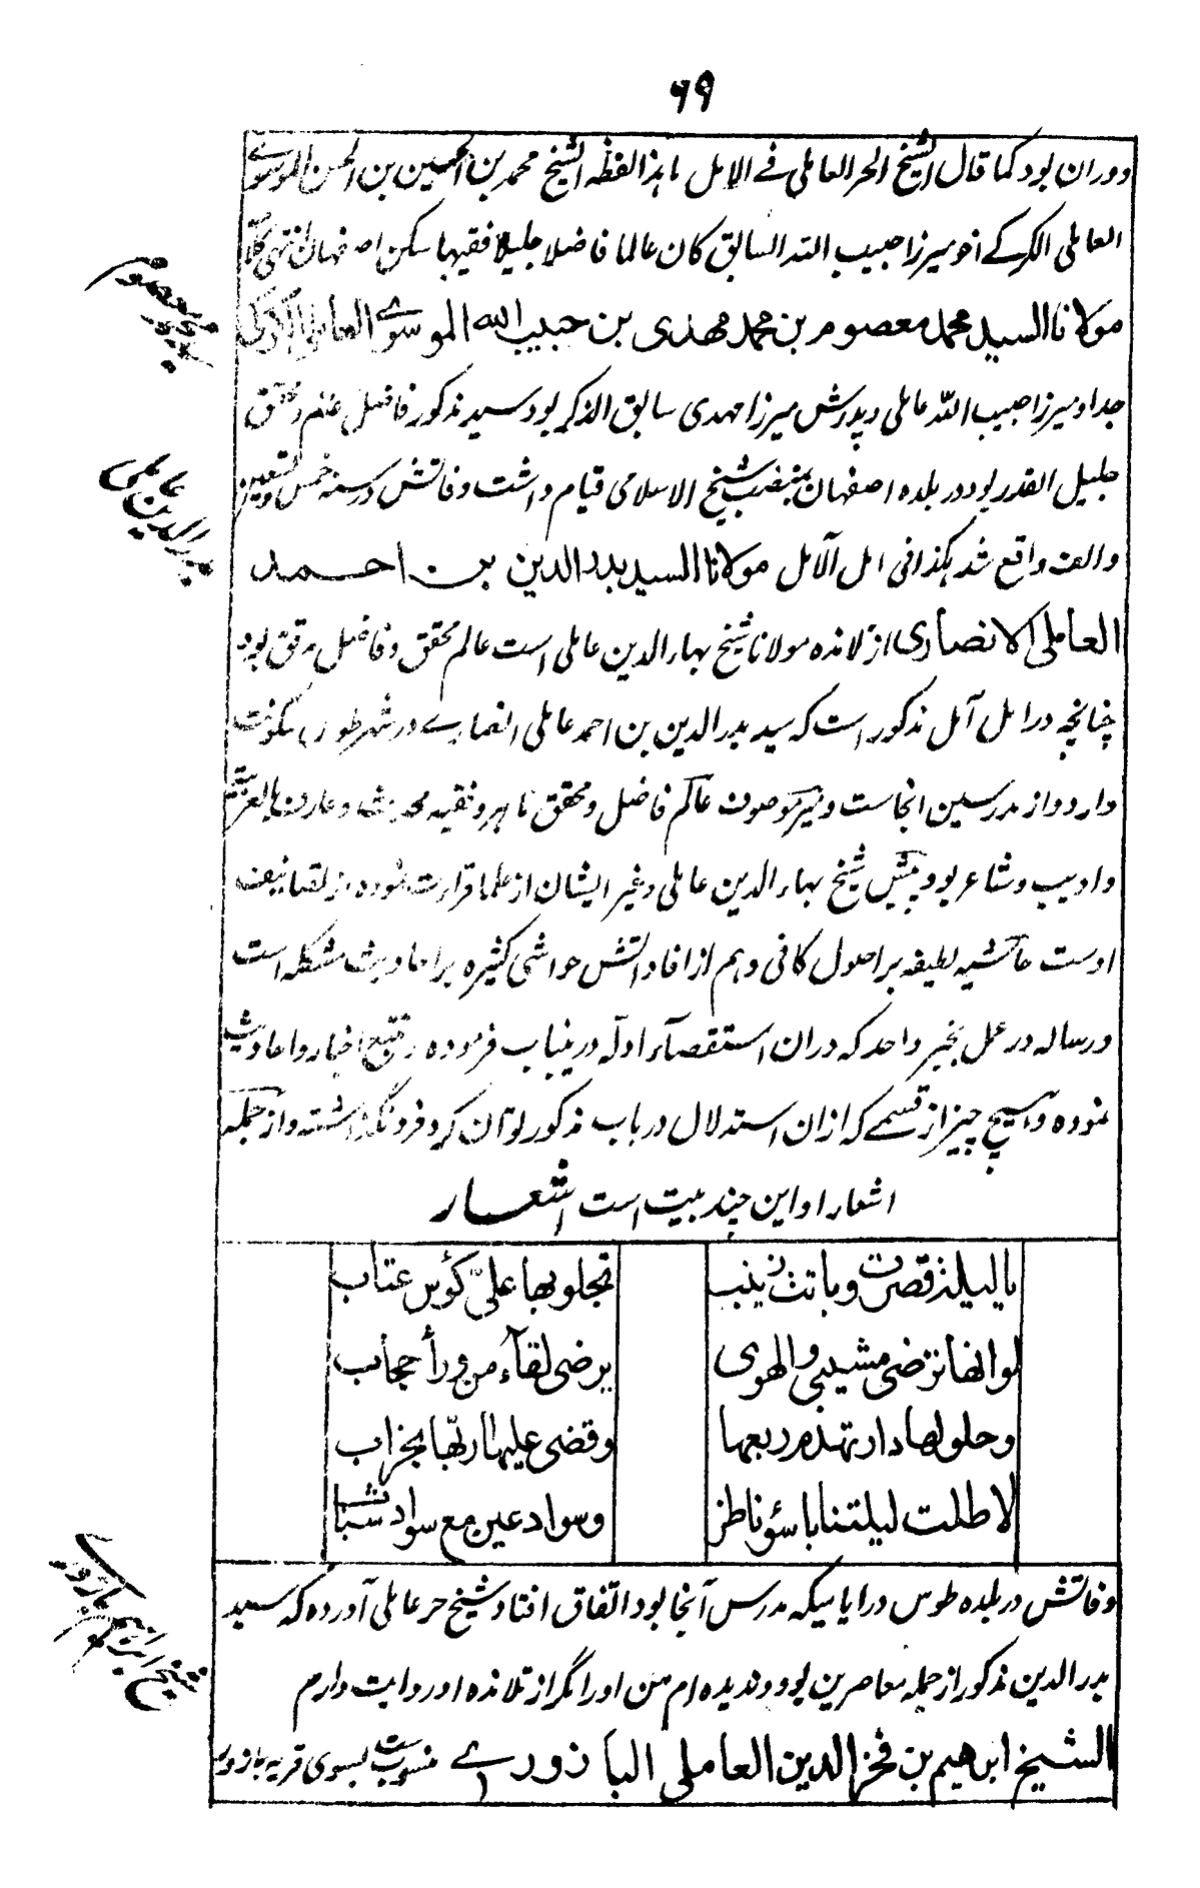 ۶۹
دوران بود کما قال الشیخ الحر العاملی فے الامل ما هذا لفظه الشیخ محمد بن الحسین بن الحسن الموسوے
العاملی الکرکے اخو میرزا حبیب الله السابق کان عالما فاضلا جلیلا فقیها سکن اصفهان انتهی
مولانا السید محمد معصوم بن محمد مهدی بن حبیب الله الموسوے العاملی الکرکی
جد او میرزا حبیب الله عاملی و پدرش میرزا مهدی سابق الذکر بود سید مذکور فاضل محقق
جلیل القدر بود در بلده اصفهان بمنصب شیخ الاسلامی قیام داشت وفاتش در سنه خمس و تسعین
والف واقع شد هکذا فی امل الآمل مولانا السید بدر الدین بن احمد
العاملی الانصاری از تلامذه مولانا شیخ بهاء الدین عاملی است عالم محقق و فاضل مدقق بود
چنانچه در امل آمل مذکور است که سید بدر الدین بن احمد عاملی انصارے در شهر طوس سکونت
دارد و از مدرسین انجاست و نیز موصوف عالم فاضل و محقق ماهر و فقیه محدث و عارف بالعربیة
و ادیب و شاعر بود و پیش شیخ بهاء الدین عاملی و غیر ایشان از علما قراءت نموده از تصانیف
اوست حاشیه لطیفه بر اصول کافی و هم از افاداتش حواشی کثیره بر احادیث مشکله است
و رساله در عمل بخبر واحد که در ان استقصاء ادله درینباب فرموده و تتبع اخبار و احادیث
نموده و هیچ چیز از قسمے که ازان استدلال در باب مذکور توان کرد فرو نگذاشته و از جمله
اشعار او این چند بیت است اشعار
یا لیلة قصرت و باتت زینب تجلو بها علیّ کؤس عتاب
لو انها ترضی مشیبی و الهوی یرضی لقاء من ورأ حجاب
و حلولها دار تهدم ربعها و قضی علیها ربّها بخراب
لا طلت لیلتنا باسؤ ناظر و سواد عین مع سواد شباب
وفاتش در بلده طوس در ایامیکه مدرس آنجا بود اتفاق افتاد شیخ حر عاملی آورده که سید
بدر الدین مذکور از جمله معاصرین بود و ندیده ام من او را مگر از تلامذه او روایت دارم
الشیخ ابرهیم بن فخر الدین العاملی البازورے منسوبست بسوی قریه بازور
سید محمد معصوم
بدر الدین عاملی
شیخ ابراهیم بازورے